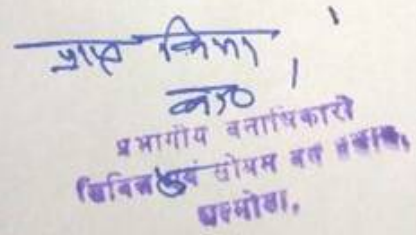 प्राप्त किया ।
कृ०
प्रभागीय वनाधिकारी
सिविल एवं सोयम वन प्रभाग,
अल्मोड़ा,